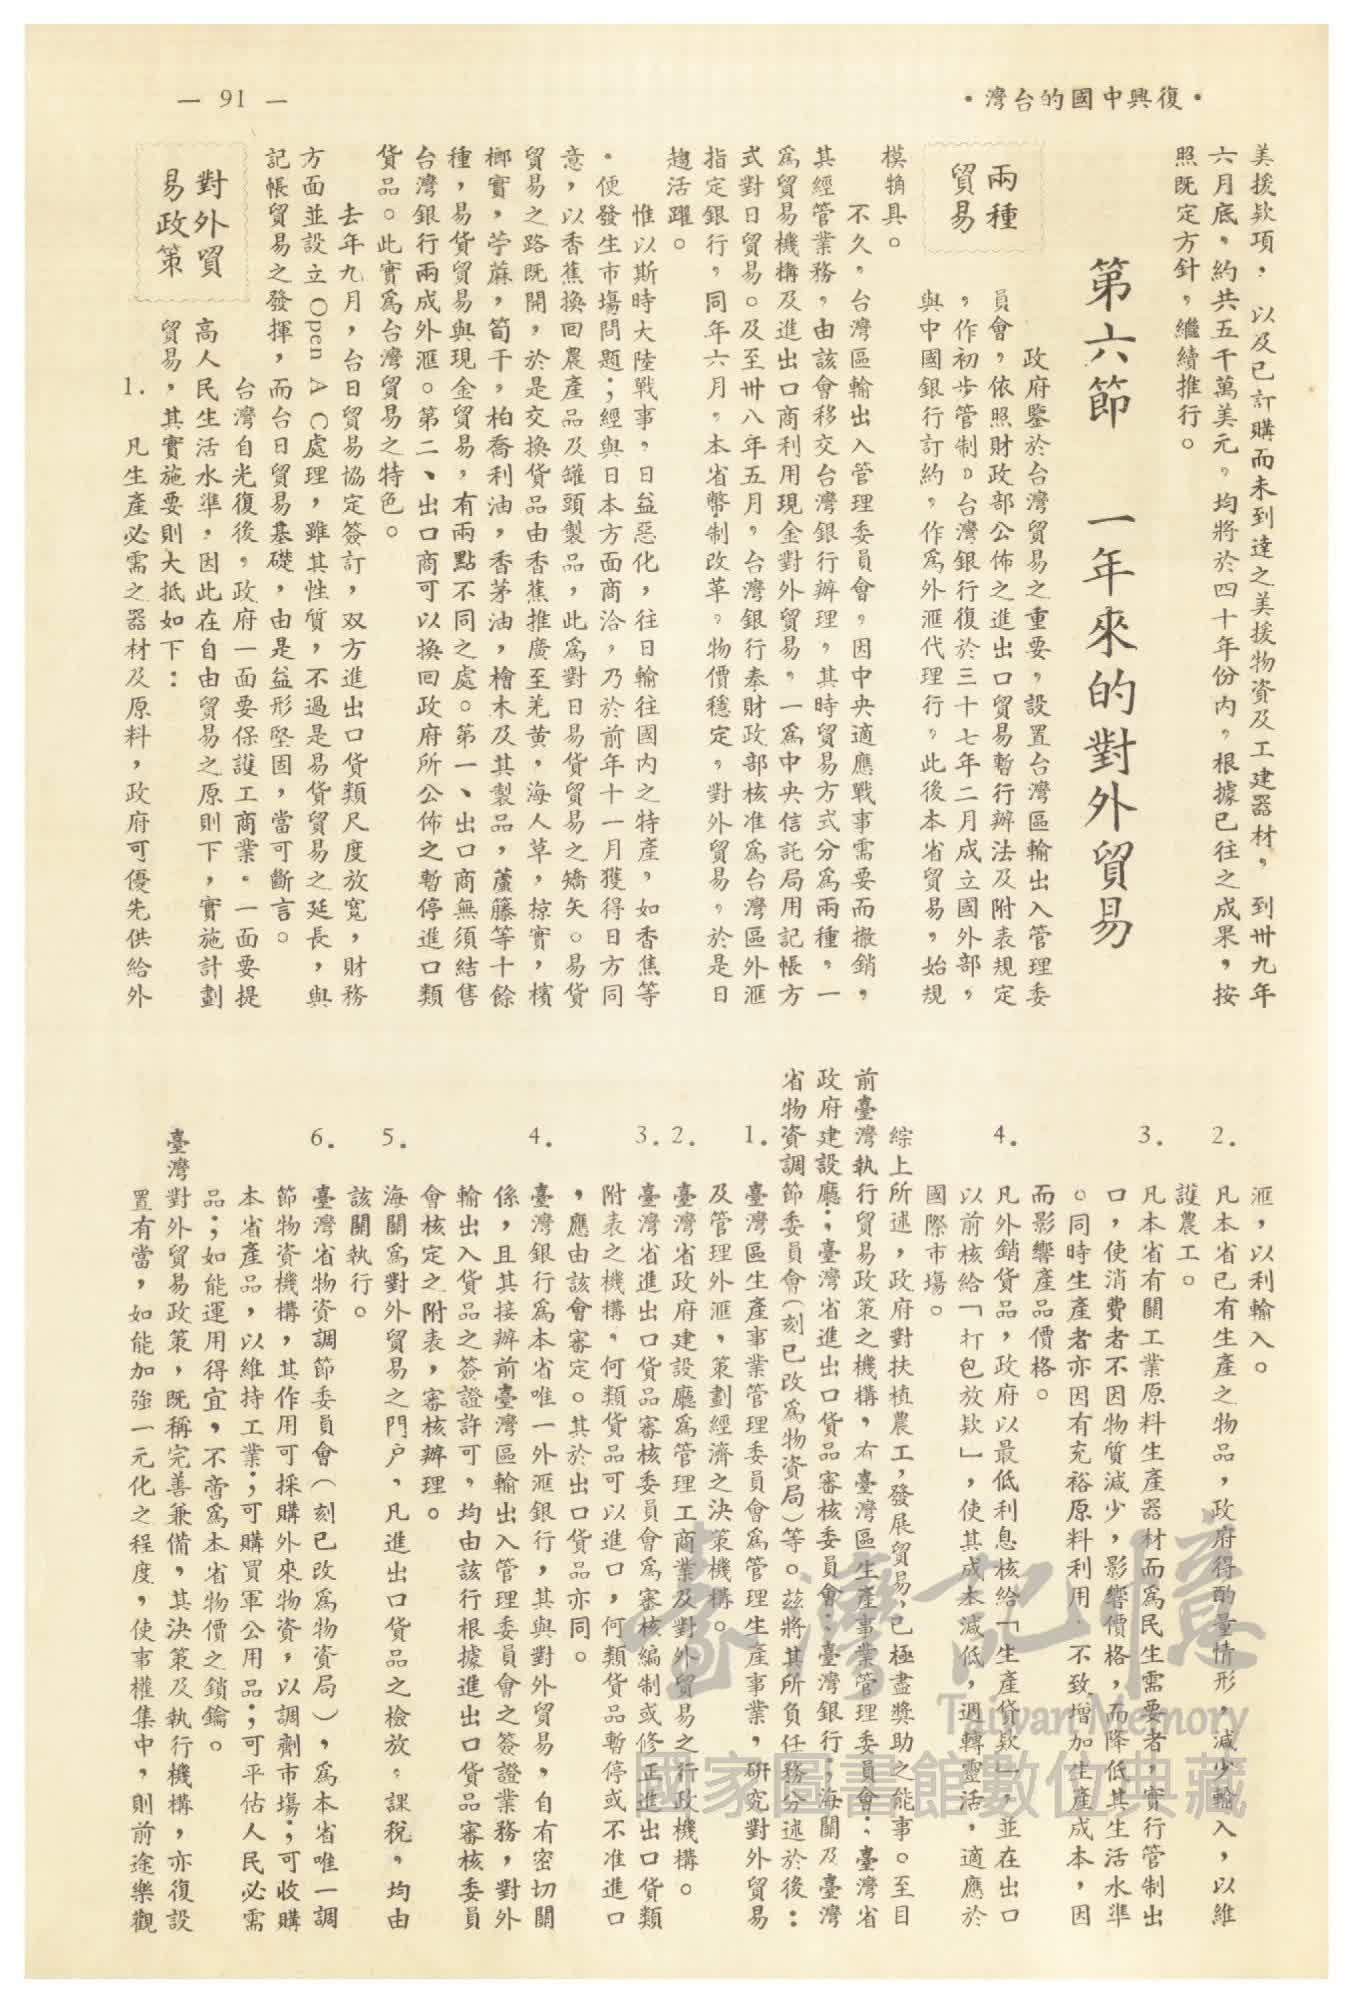 •復興中國的台灣•
— 91 —
美援欵項，以及已訂購而未到達之美援物資及工建器材，到卅九年
六月底，約共五千萬美元。均將於四十年份內，根據已往之成果，按
照既定方針，繼續推行。
第六節　一年來的對外貿易
兩種
貿易
政府鑒於台灣貿易之重要，設置台灣區輸出入管理委
員會，依照財政部公佈之進出口貿易暫行辦法及附表規定
，作初步管制。台灣銀行復於三十七年二月成立國外部，
與中國銀行訂約，作爲外滙代理行。此後本省貿易，始規
模觕具。
不久，台灣區輸出入管理委員會，因中央適應戰事需要而撤銷，
其經管業務，由該會移交台灣銀行辦理，其時貿易方式分爲兩種，一
爲貿易機構及進出口商利用現金對外貿易，一爲中央信託局用記帳方
式對日貿易。及至卅八年五月，台灣銀行奉財政部核准爲台灣區外滙
指定銀行，同年六月，本省幣制改革。物價穩定，對外貿易，於是日
趨活躍。
惟以斯時大陸戰事，日益惡化，往日輸往國內之特產，如香焦等
，便發生市塲問題；經與日本方面商洽，乃於前年十一月獲得日方同
意，以香蕉換回農產品及罐頭製品，此爲對日易貨貿易之矯矢。易貨
貿易之路既開，於是交換貨品由香蕉推廣至羌黃，海人草，椋實，檳
榔實，苧蔴，筍干，柏喬利油，香茅油，檜木及其製品，蘆籐等十餘
種，易貨貿易與現金貿易，有兩點不同之處。第一、出口商無須結售
台灣銀行兩成外滙。第二、出口商可以換回政府所公佈之暫停進口類
貨品。此實爲台灣貿易之特色。
去年九月，台日貿易協定簽訂，双方進出口貨類尺度放寬，財務
方面並設立 Open A C 處理，雖其性質，不過是易貨貿易之延長，與
記帳貿易之發揮，而台日貿易基礎，由是益形堅固，當可斷言。
對外貿
易政策
台灣自光復後，政府一面要保護工商業。一面要提
高人民生活水準，因此在自由貿易之原則下，實施計劃
貿易，其實施要則大抵如下：
1. 凡生產必需之器材及原料，政府可優先供給外
滙，以利輸入。
2. 凡本省已有生產之物品，政府得酌量情形，減少輸入，以維
護農工。
3. 凡本省有關工業原料生產器材而爲民生需要者，實行管制出
口，使消費者不因物質減少，影響價格，而降低其生活水準
。同時生產者亦因有充裕原料利用，不致增加生產成本，因
而影響產品價格。
4. 凡外銷貨品，政府以最低利息核給「生產貸欵」，並在出口
以前核給「打包放欵」，使其成本減低，週轉靈活，適應於
國際市塲。
綜上所述，政府對扶植農工，發展貿易，已極盡獎助之能事。至目
前臺灣執行貿易政策之機構，有臺灣區生產事業管理委員會；臺灣省
政府建設廳；臺灣省進出口貨品審核委員會；臺灣銀行；海關及臺灣
省物資調節委員會（刻已改爲物資局）等。茲將其所負任務分述於後：
1. 臺灣區生產事業管理委員會爲管理生產事業，研究對外貿易
及管理外滙，策劃經濟之決策機構。
2. 臺灣省政府建設廳爲管理工商業及對外貿易之行政機構。
3. 臺灣省進出口貨品審核委員會爲審核編制或修正進出口貨類
附表之機構，何類貨品可以進口，何類貨品暫停或不准進口
，應由該會審定。其於出口貨品亦同。
4. 臺灣銀行爲本省唯一外滙銀行，其與對外貿易，自有密切關
係，且其接辦前臺灣區輸出入管理委員會之簽證業務，對外
輸出入貨品之簽證許可，均由該行根據進出口貨品審核委員
會核定之附表，審核辦理。
5. 海關爲對外貿易之門户，凡進出口貨品之檢放，課税，均由
該關執行。
6. 臺灣省物資調節委員會（刻已改爲物資局），爲本省唯一調
節物資機構，其作用可採購外來物資，以調劑市塲；可收購
本省產品，以維持工業；可購買軍公用品；可平估人民必需
品；如能運用得宜，不啻爲本省物價之鎖鑰。
臺灣對外貿易政策，既稱完善兼備，其決策及執行機構，亦復設
置有當，如能加強一元化之程度，使事權集中，則前途樂觀
臺灣記憶
Taiwan Memory
國家圖書館數位典藏